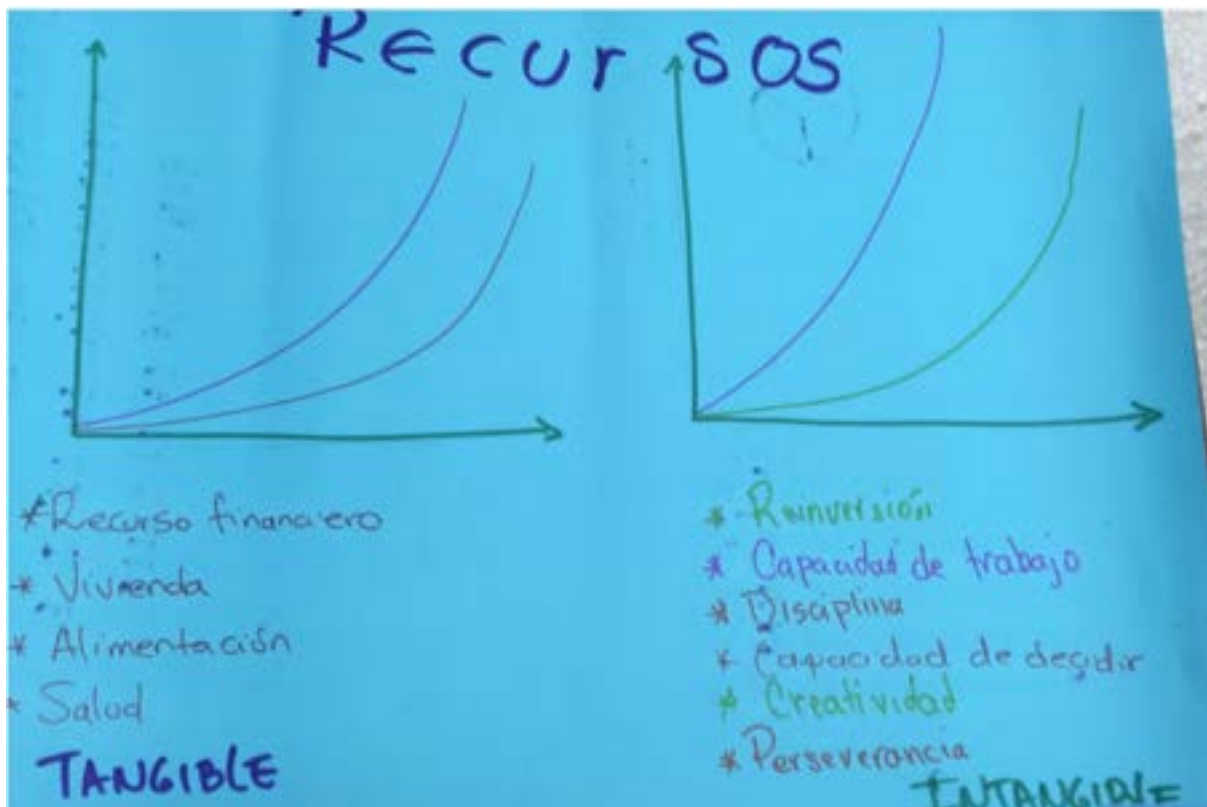 Recursos
* Recurso financiero
* Vivienda
* Alimentación
* Salud
TANGIBLE
* Reinversión
* Capacidad de trabajo
* Disciplina
* Capacidad de decidir
* Creatividad
* Perseverancia
INTANGIBLE